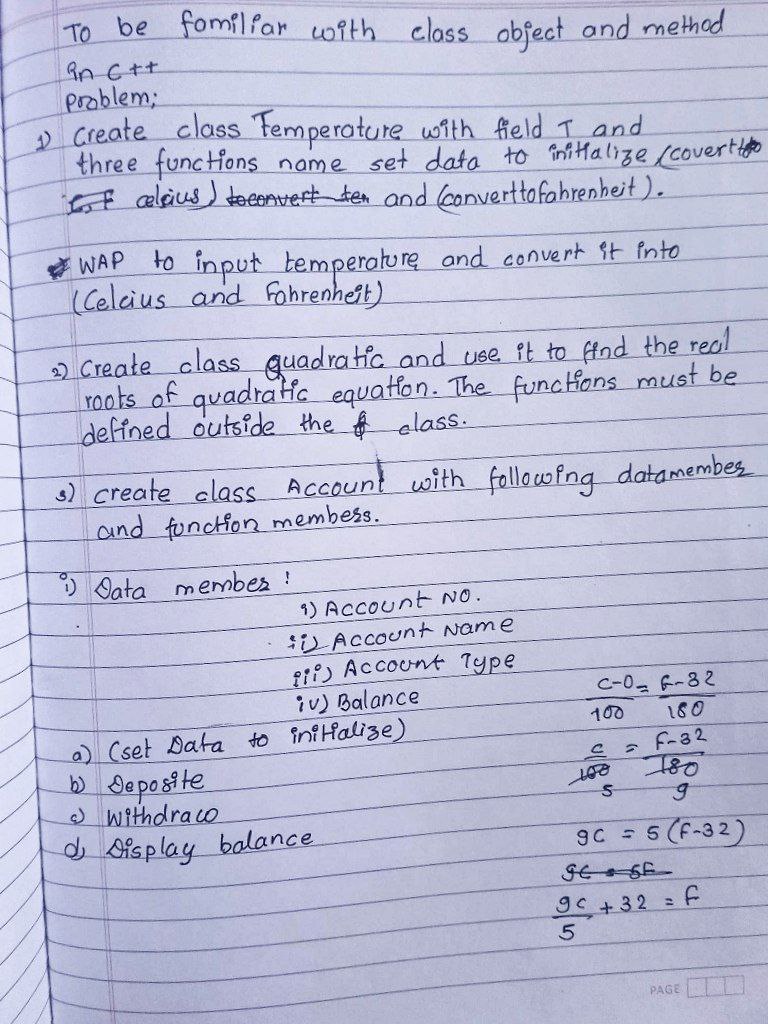 To be familiar with class object and method
in C++
Problem;
1) Create class Temperature with field T and
three functions name set data to initialize (covertto
celcius) and (converttofahrenheit).
WAP to input temperature and convert it into
(Celcius and Fahrenheit)
2) Create class quadratic and use it to find the real
roots of quadratic equation. The functions must be
defined outside the class.
3) create class Account with following datamember
and function members.
i) Data member:
i) Account No.
ii) Account Name
iii) Account Type
iv) Balance
a) (set Data to initialize)
b) Deposite
c) Withdraw
d) Display balance
C-0 = F-32
100 180
C = F-32
100 180
5 9
9C = 5(F-32)
9C = 5F
9C + 32 = F
5
PAGE